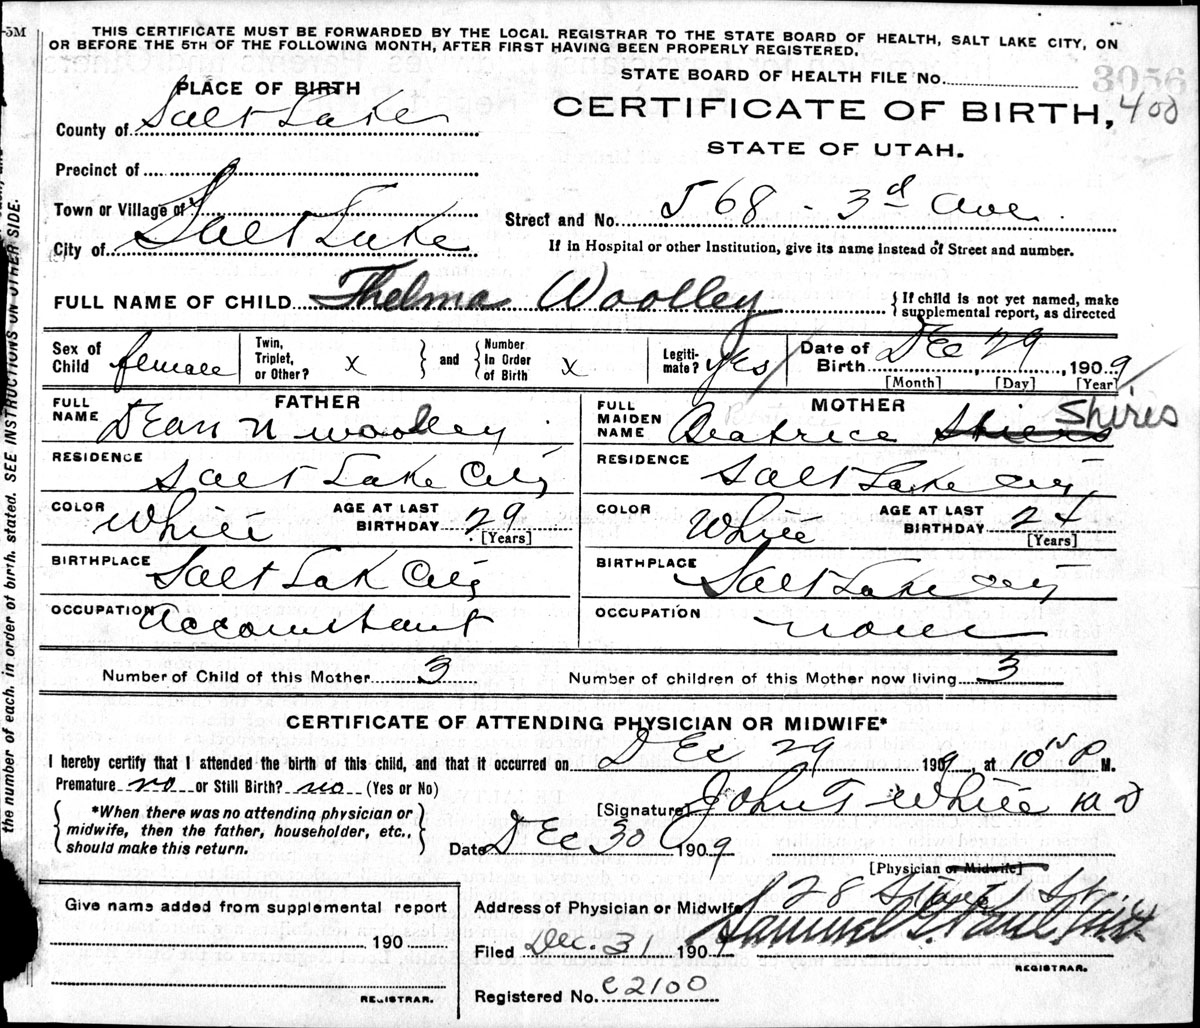 -5M
THIS CERTIFICATE MUST BE FORWARDED BY THE LOCAL REGISTRAR TO THE STATE BOARD OF HEALTH, SALT LAKE CITY, ON
OR BEFORE THE 5TH OF THE FOLLOWING MONTH, AFTER FIRST HAVING BEEN PROPERLY REGISTERED.
STATE BOARD OF HEALTH FILE No. 3056
PLACE OF BIRTH
CERTIFICATE OF BIRTH, 400
County of Salt Lake
STATE OF UTAH.
Precinct of
Town or Village of
Street and No. 568 - 3d Ave
City of Salt Lake
If in Hospital or other Institution, give its name instead of Street and number.
FULL NAME OF CHILD Thelma Woolley { If child is not yet named, make supplemental report, as directed
Sex of Child female
Twin, Triplet, or Other? x } and { Number In Order of Birth x
Legitimate? yes
Date of Birth Dec 29, 1909
[Month] [Day] [Year]
FATHER
FULL NAME Dean N Woolley
RESIDENCE Salt Lake City
COLOR White AGE AT LAST BIRTHDAY 29 [Years]
BIRTHPLACE Salt Lak City
OCCUPATION Accountant
MOTHER
FULL MAIDEN NAME Beatrice Shires
RESIDENCE Salt Lake City
COLOR White AGE AT LAST BIRTHDAY 24 [Years]
BIRTHPLACE Salt Lake City
OCCUPATION none
Number of Child of this Mother 3 Number of children of this Mother now living 3
CERTIFICATE OF ATTENDING PHYSICIAN OR MIDWIFE*
I hereby certify that I attended the birth of this child, and that it occurred on Dec 29 1909, at 10 P M.
Premature no or Still Birth? no (Yes or No)
{ *When there was no attending physician or midwife, then the father, householder, etc., should make this return. }
[Signature] John T White M D
Date Dec 30 1909
[Physician or Midwife]
Give name added from supplemental report
190
REGISTRAR.
Address of Physician or Midwife 128 State St.
Filed Dec. 31 1909 Samuel G. Paul
REGISTRAR.
Registered No. c2100
the number of each, in order of birth, stated. SEE INSTRUCTIONS ON OTHER SIDE.